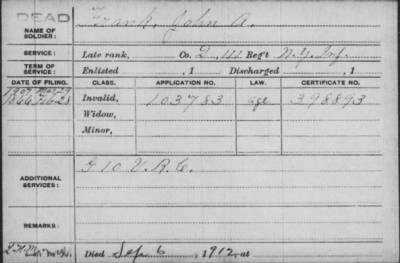 DEAD
NAME OF SOLDIER: Frank, John A.
SERVICE: Late rank, Co. D, 111 Reg't N.Y. Inf.
TERM OF SERVICE: Enlisted , 1 Discharged , 1
DATE OF FILING. CLASS. APPLICATION NO. LAW. CERTIFICATE NO.
1907 Mar 29
1866 Feb 28 Invalid, 103783 age 398893
Widow,
Minor,
ADDITIONAL SERVICES: G 10 V.R.C.
REMARKS:
Died Sep. 6, 1912, at